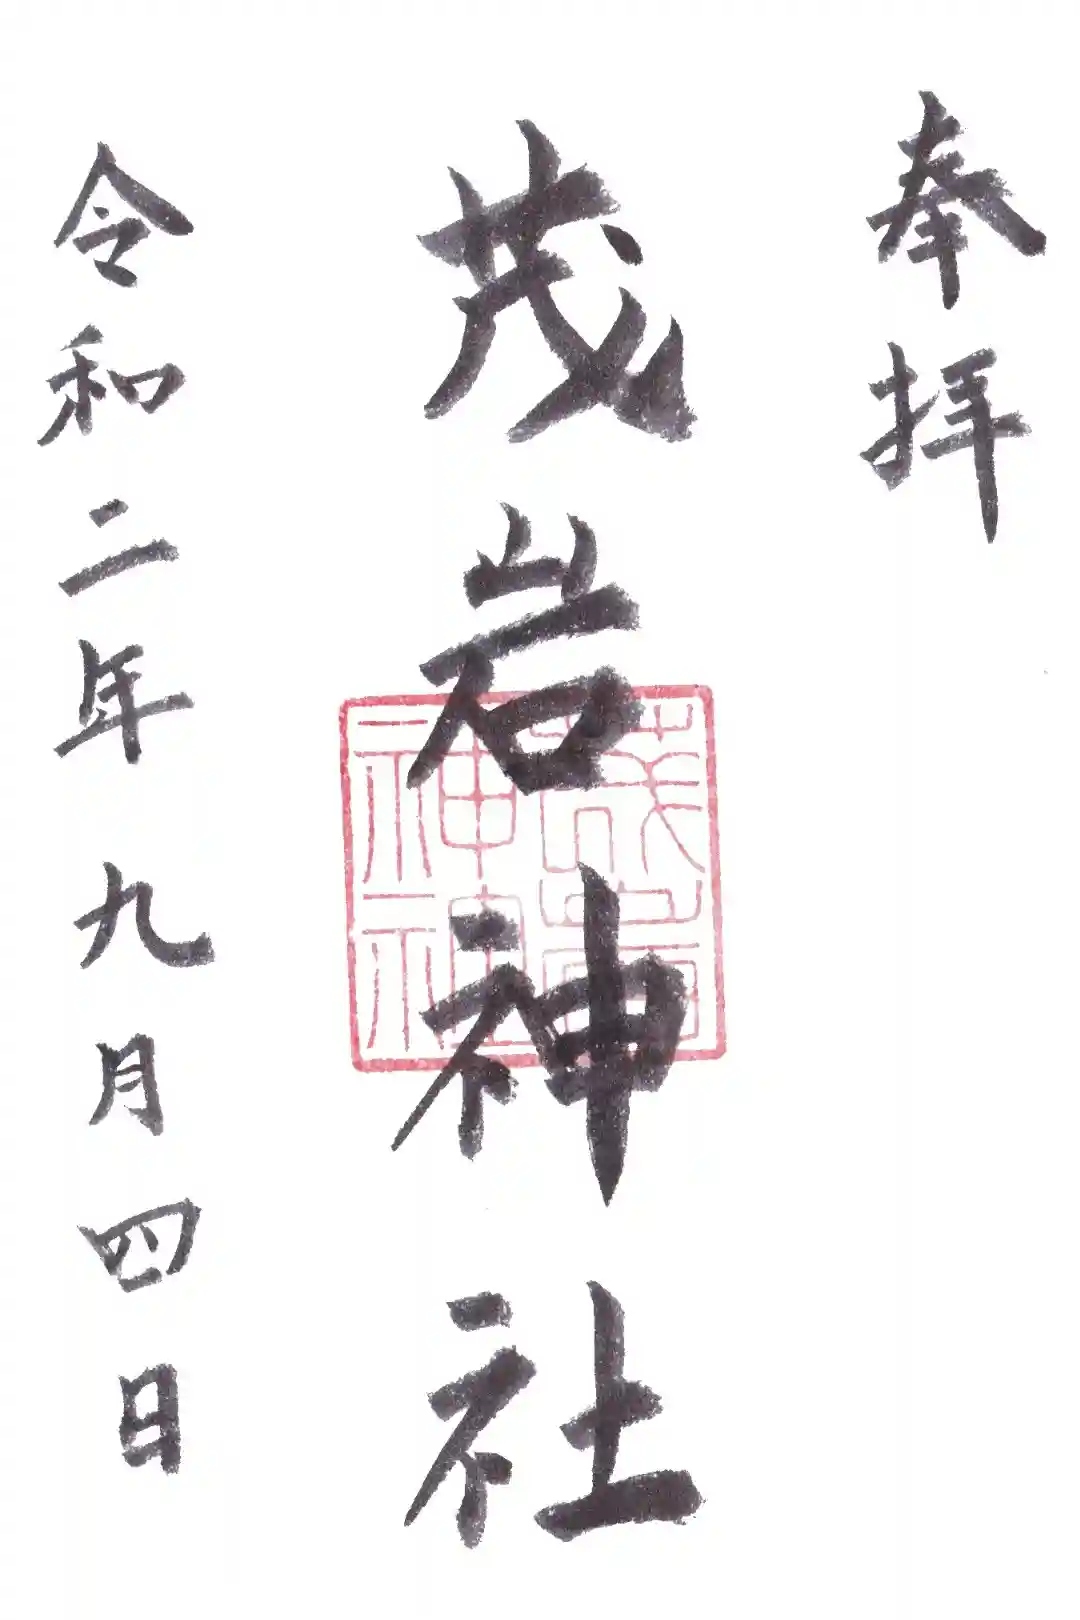 奉拝
茂岩神社
令和二年九月四日
茂岩
神社